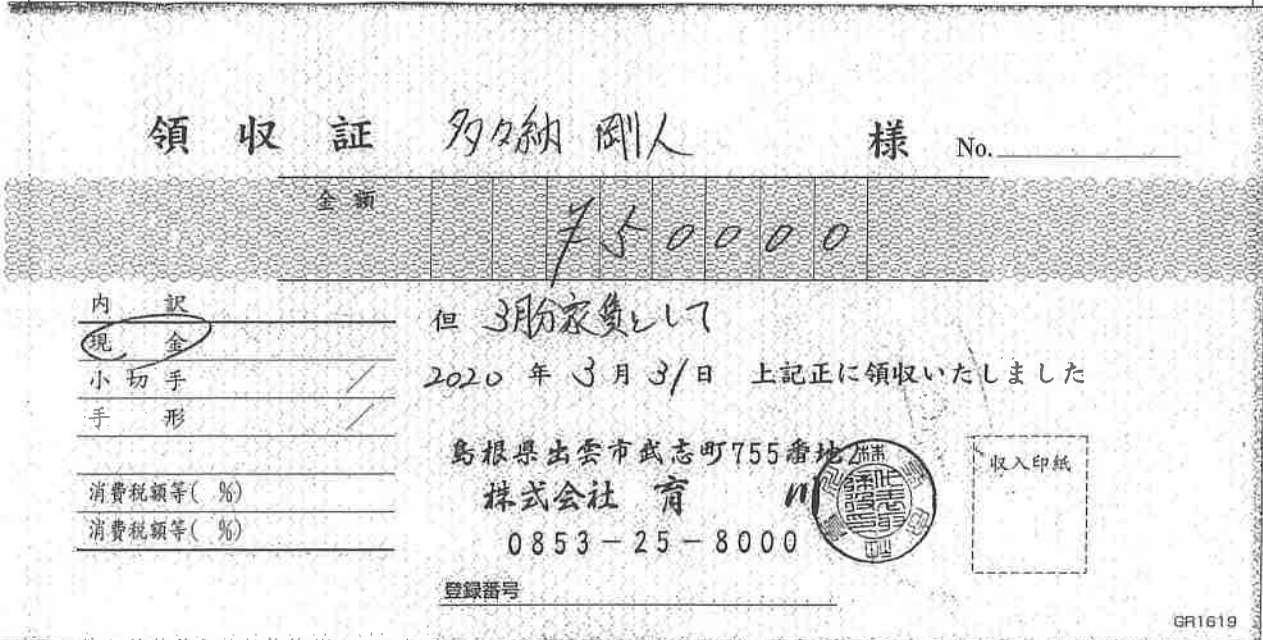 領収証 多々納 剛人 様 No.
金額 ¥50000
内訳
現金
小切手
手形
消費税額等( %)
消費税額等( %)
但 3月分家賃として
2020年3月31日 上記正に領収いたしました
島根県出雲市武志町755番地2
株式会社 育川
0853-25-8000
登録番号
収入印紙
GR1619